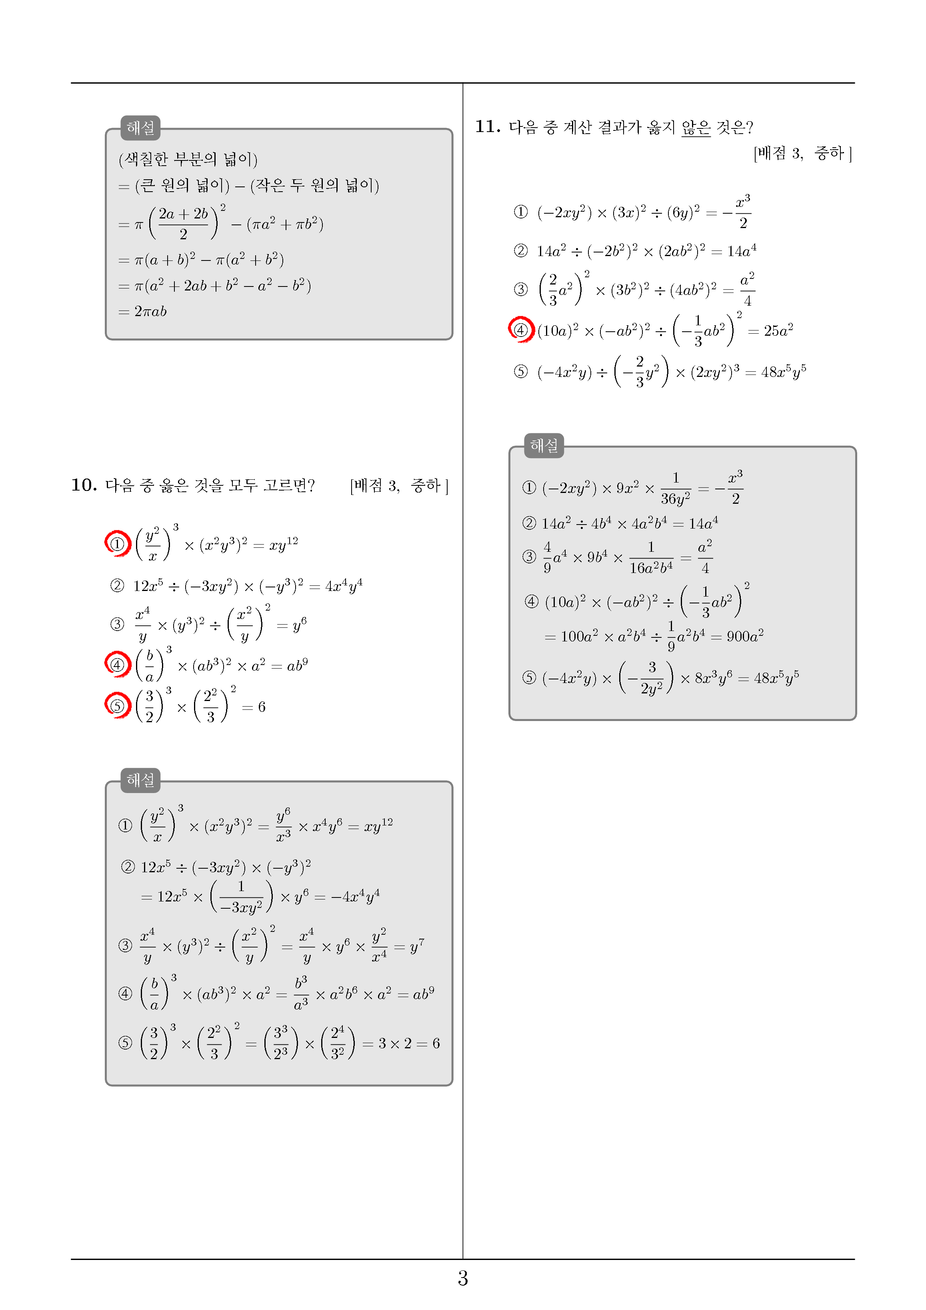 해설
(색칠한 부분의 넓이)
= (큰 원의 넓이) − (작은 두 원의 넓이)
= π((2a + 2b)/2)² − (πa² + πb²)
= π(a + b)² − π(a² + b²)
= π(a² + 2ab + b² − a² − b²)
= 2πab
10. 다음 중 옳은 것을 모두 고르면? [배점 3, 중하]
① (y²/x)³ × (x²y³)² = xy¹²
② 12x⁵ ÷ (−3xy²) × (−y³)² = 4x⁴y⁴
③ x⁴/y × (y³)² ÷ (x²/y)² = y⁶
④ (b/a)³ × (ab³)² × a² = ab⁹
⑤ (3/2)³ × (2²/3)² = 6
해설
① (y²/x)³ × (x²y³)² = y⁶/x³ × x⁴y⁶ = xy¹²
② 12x⁵ ÷ (−3xy²) × (−y³)²
= 12x⁵ × (1/−3xy²) × y⁶ = −4x⁴y⁴
③ x⁴/y × (y³)² ÷ (x²/y)² = x⁴/y × y⁶ × y²/x⁴ = y⁷
④ (b/a)³ × (ab³)² × a² = b³/a³ × a²b⁶ × a² = ab⁹
⑤ (3/2)³ × (2²/3)² = (3³/2³) × (2⁴/3²) = 3 × 2 = 6
11. 다음 중 계산 결과가 옳지 않은 것은?
[배점 3, 중하]
① (−2xy²) × (3x)² ÷ (6y)² = −x³/2
② 14a² ÷ (−2b²)² × (2ab²)² = 14a⁴
③ (2/3 a²)² × (3b²)² ÷ (4ab²)² = a²/4
④ (10a)² × (−ab²)² ÷ (−1/3 ab²)² = 25a²
⑤ (−4x²y) ÷ (−2/3 y²) × (2xy²)³ = 48x⁵y⁵
해설
① (−2xy²) × 9x² × 1/36y² = −x³/2
② 14a² ÷ 4b⁴ × 4a²b⁴ = 14a⁴
③ 4/9 a⁴ × 9b⁴ × 1/16a²b⁴ = a²/4
④ (10a)² × (−ab²)² ÷ (−1/3 ab²)²
= 100a² × a²b⁴ ÷ 1/9 a²b⁴ = 900a²
⑤ (−4x²y) × (−3/2y²) × 8x³y⁶ = 48x⁵y⁵
3